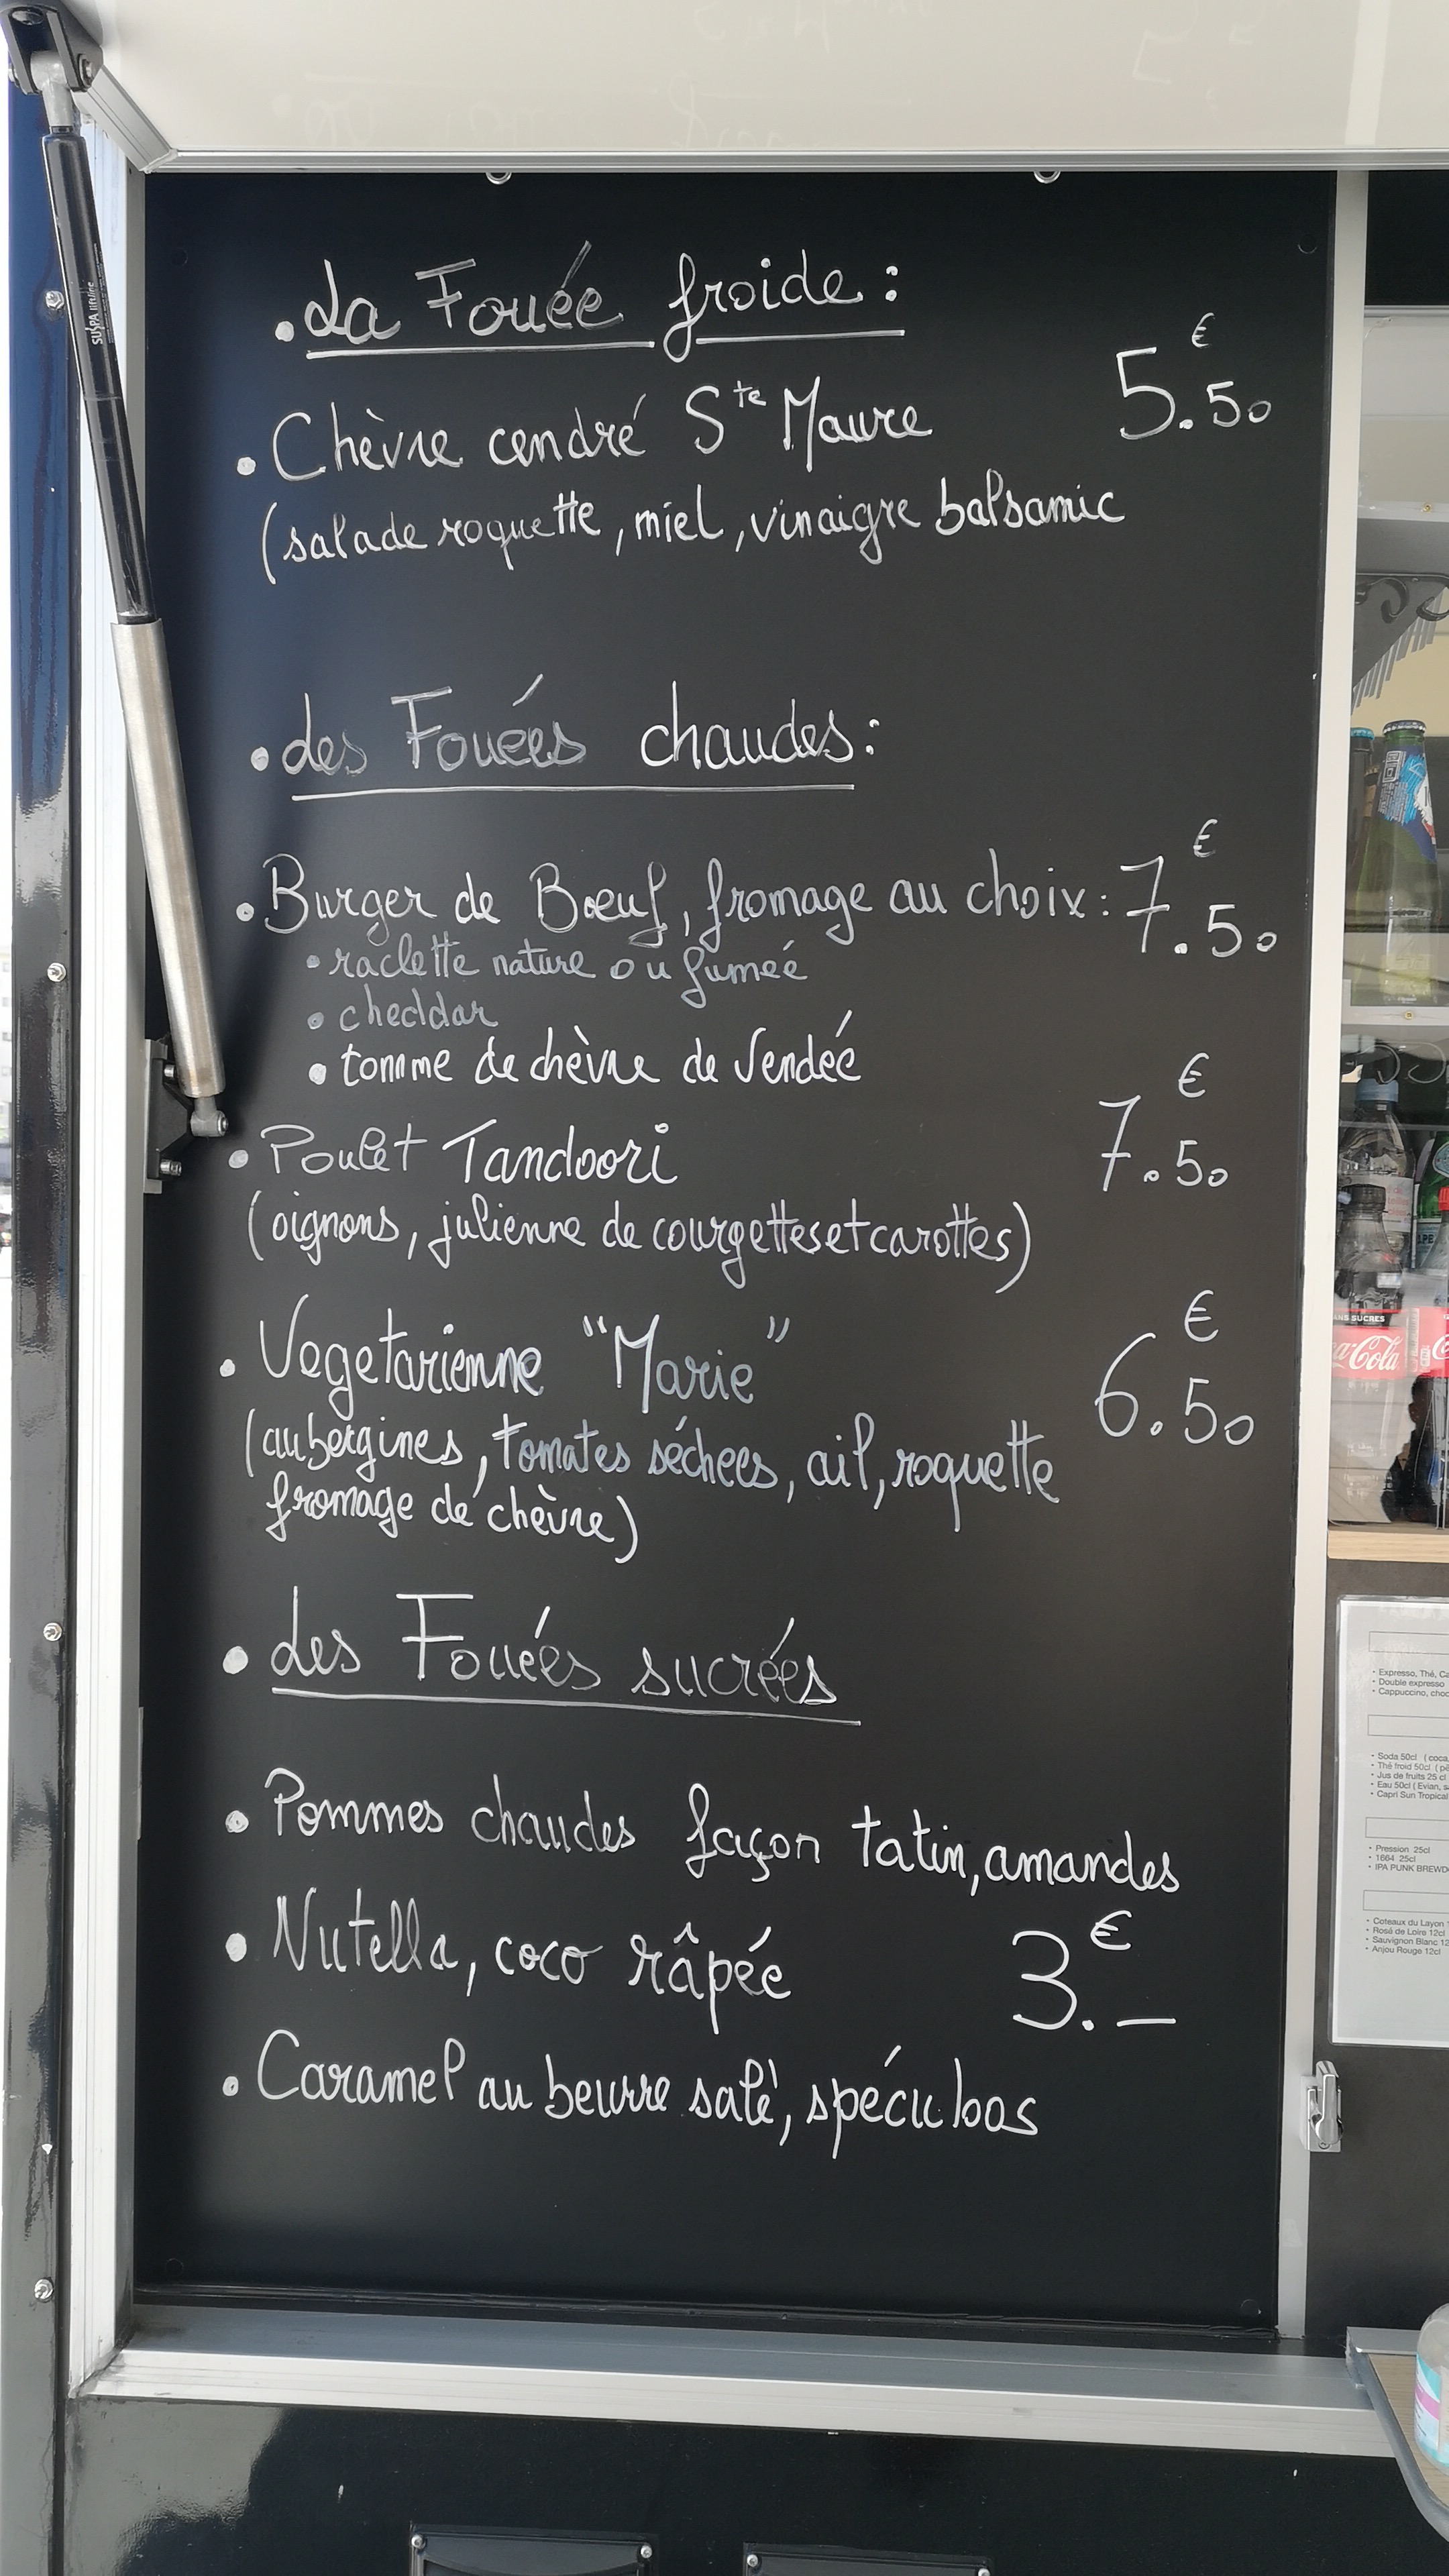 . La Fouée froide :
. Chèvre cendré Ste Maure
5.50 €
(salade roquette, miel, vinaigre balsamic
. Les Fouées chaudes :
. Burger de Bœuf, fromage au choix : 7.50 €
. raclette nature ou fumée
. cheddar
. tomme de chèvre de Vendée
. Poulet Tandoori 7.50 €
(oignons, julienne de courgettes et carottes)
. Vegetarienne "Marie" 6.50 €
(aubergines, tomates séchees, ail, roquette
fromage de chèvre)
. Les Fouées sucrées
. Pommes chaudes façon tatin, amandes
. Nutella, coco râpée 3.— €
. Caramel au beurre salé, spéculoos
SUSPA liftline
ANS SUCRES
a-Cola
• Expresso, Thé, Ca
• Double expresso
• Cappuccino, choc
• Soda 50cl (coca,
• Thé froid 50cl (pê
• Jus de fruits 25 cl
• Eau 50cl (Evian, s
• Capri Sun Tropical
• Pression 25cl
• 1664 25cl
• IPA PUNK BREWD
• Coteaux du Layon 1
• Rosé de Loire 12cl
• Sauvignon Blanc 12
• Anjou Rouge 12cl